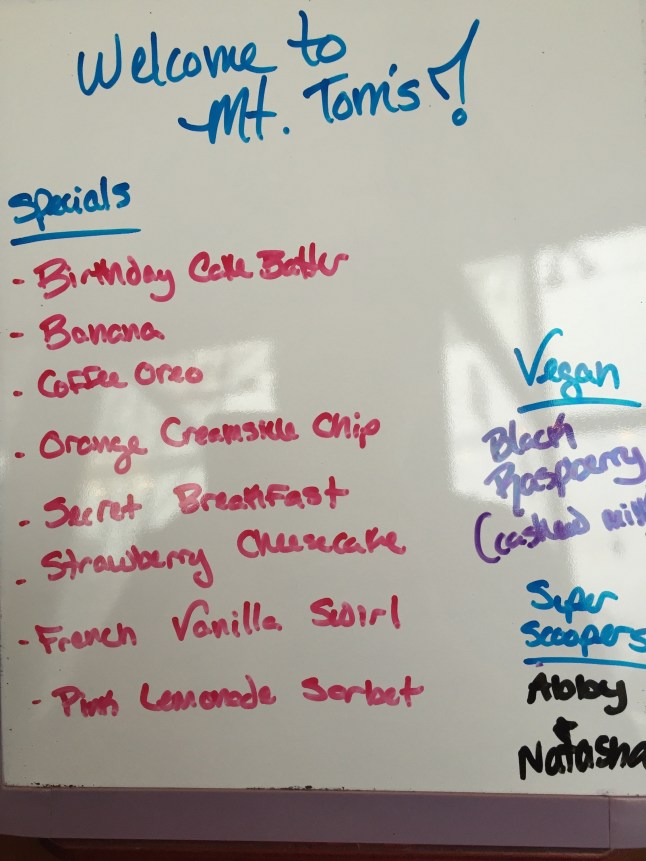 Welcome to
Mt. Tom's!
Specials
- Birthday Cake Batter
- Banana
- Coffee Oreo
- Orange Creamsicle Chip
- Secret Breakfast
- Strawberry Cheesecake
- French Vanilla Swirl
- Pink Lemonade Sorbet
Vegan
Black
Raspberry
(cashew milk
Super
Scoopers
Abby
&
Natasha